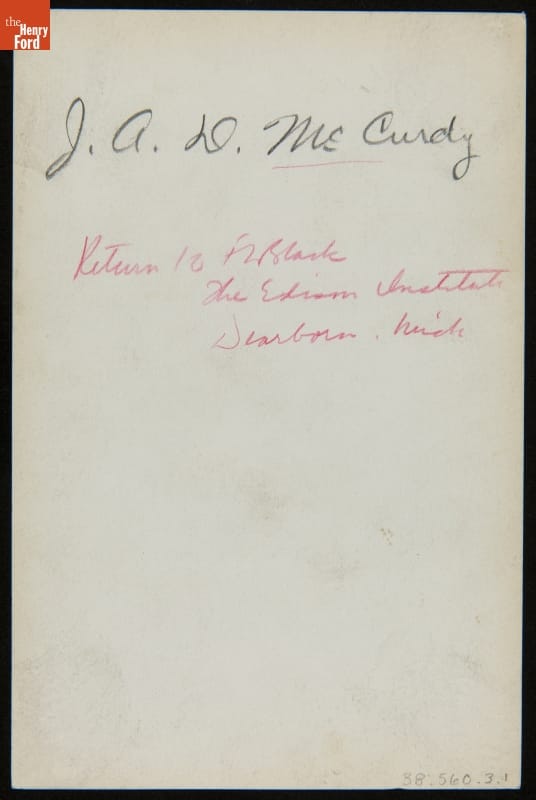 the
Henry
Ford
J. A. D. McCurdy
Return to F Black
The Edison Institute
Dearborn. Mich
38.560.3.1